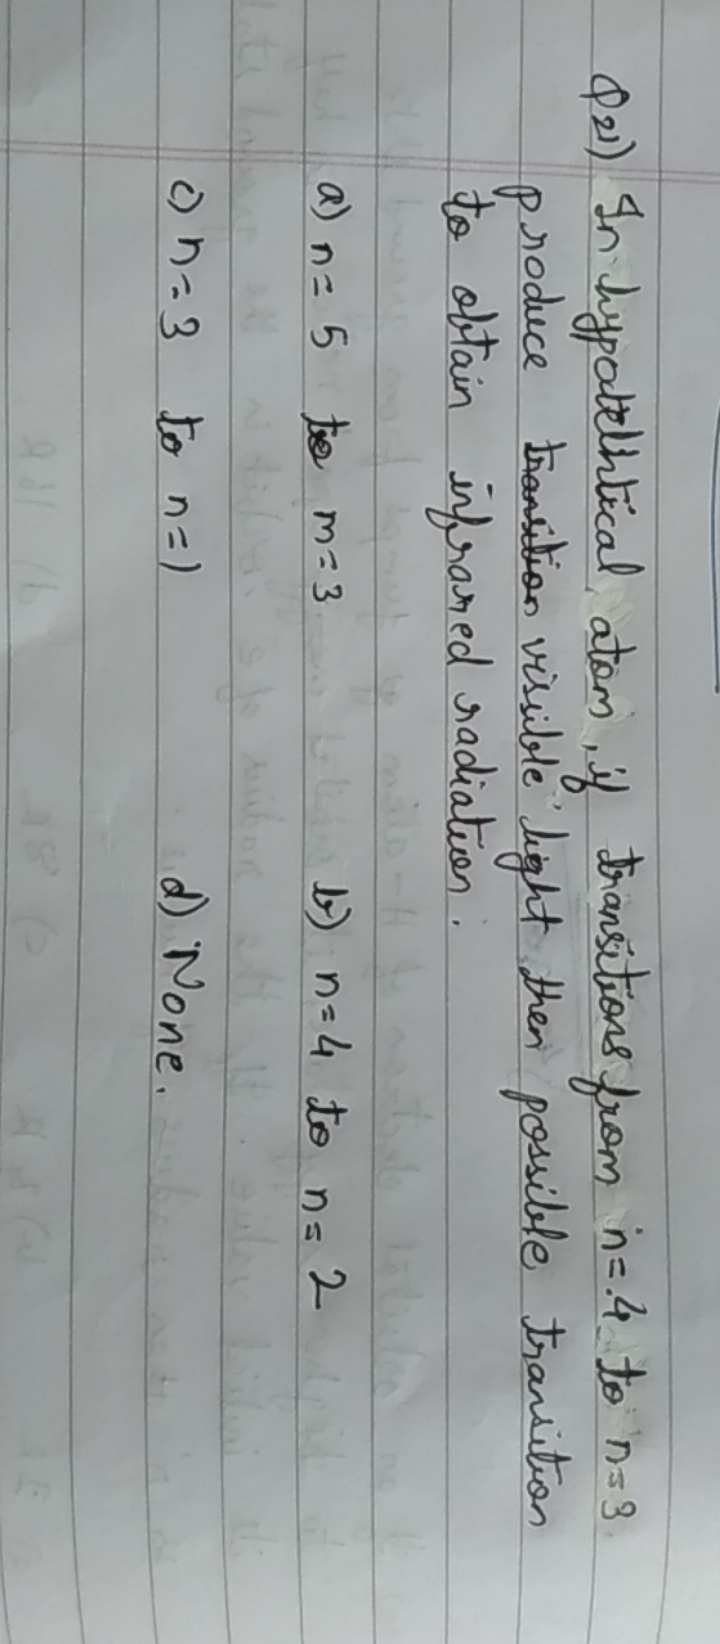 Q21) In hypotelhtical atom, if transitions from n=4 to n=3
produce transition vissible light then possible transition
to obtain infrared radiation.
a) n=5 to m=3 b) n=4 to n=2
c) n=3 to n=1 d) None.